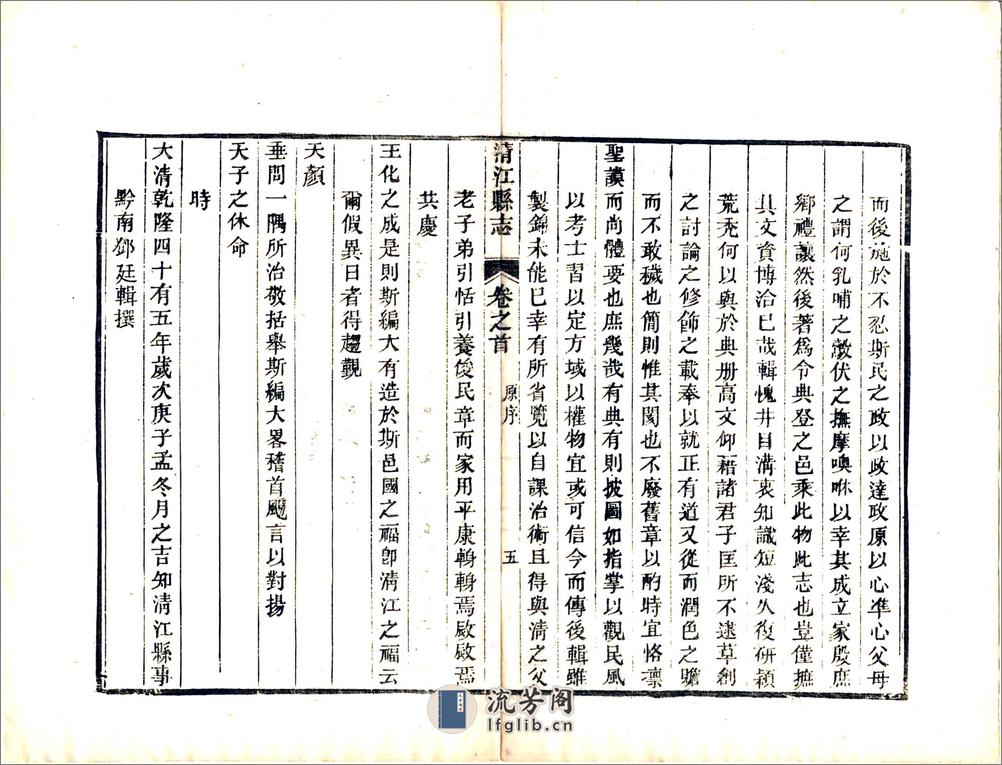 而後施於不忍斯民之政以政達政原以心準心父母
之謂何乳哺之噢伏之撫摩噢咻以幸其成立家殷庶
鄉禮讓然後著為令典登之邑乘此物此志也豈僅摭
其文資博洽已哉輯愧井目溝衷知識短淺久復研穎
荒禿何以與於典册高文仰藉諸君子匡所不逮草創
之討論之修飾之載奉以就正有道又從而潤色之贍
而不敢穢也簡則惟其閡也不廢舊章以酌時宜恪凛
聖謨而尚體要也庶幾哉有典有則披圖如指掌以觀民風
以考士習以定方域以權物宜或可信今而傳後輯雖
製錦未能已幸有所省覽以自課治術且得與清之父
清江縣志
卷之首
原序
五
老子弟引恬引養俊民章而家用平康軫軫焉啟啟焉
共慶
王化之成是則斯編大有造於斯邑國之福卽清江之福云
爾假異日者得趨覲
天顏
垂問一隅所治敬括舉斯編大畧稽首颺言以對揚
天子之休命
時
大清乾隆四十有五年歲次庚子孟冬月之吉知清江縣事
黔南鄧廷輯撰
流芳阁
lfglib.cn